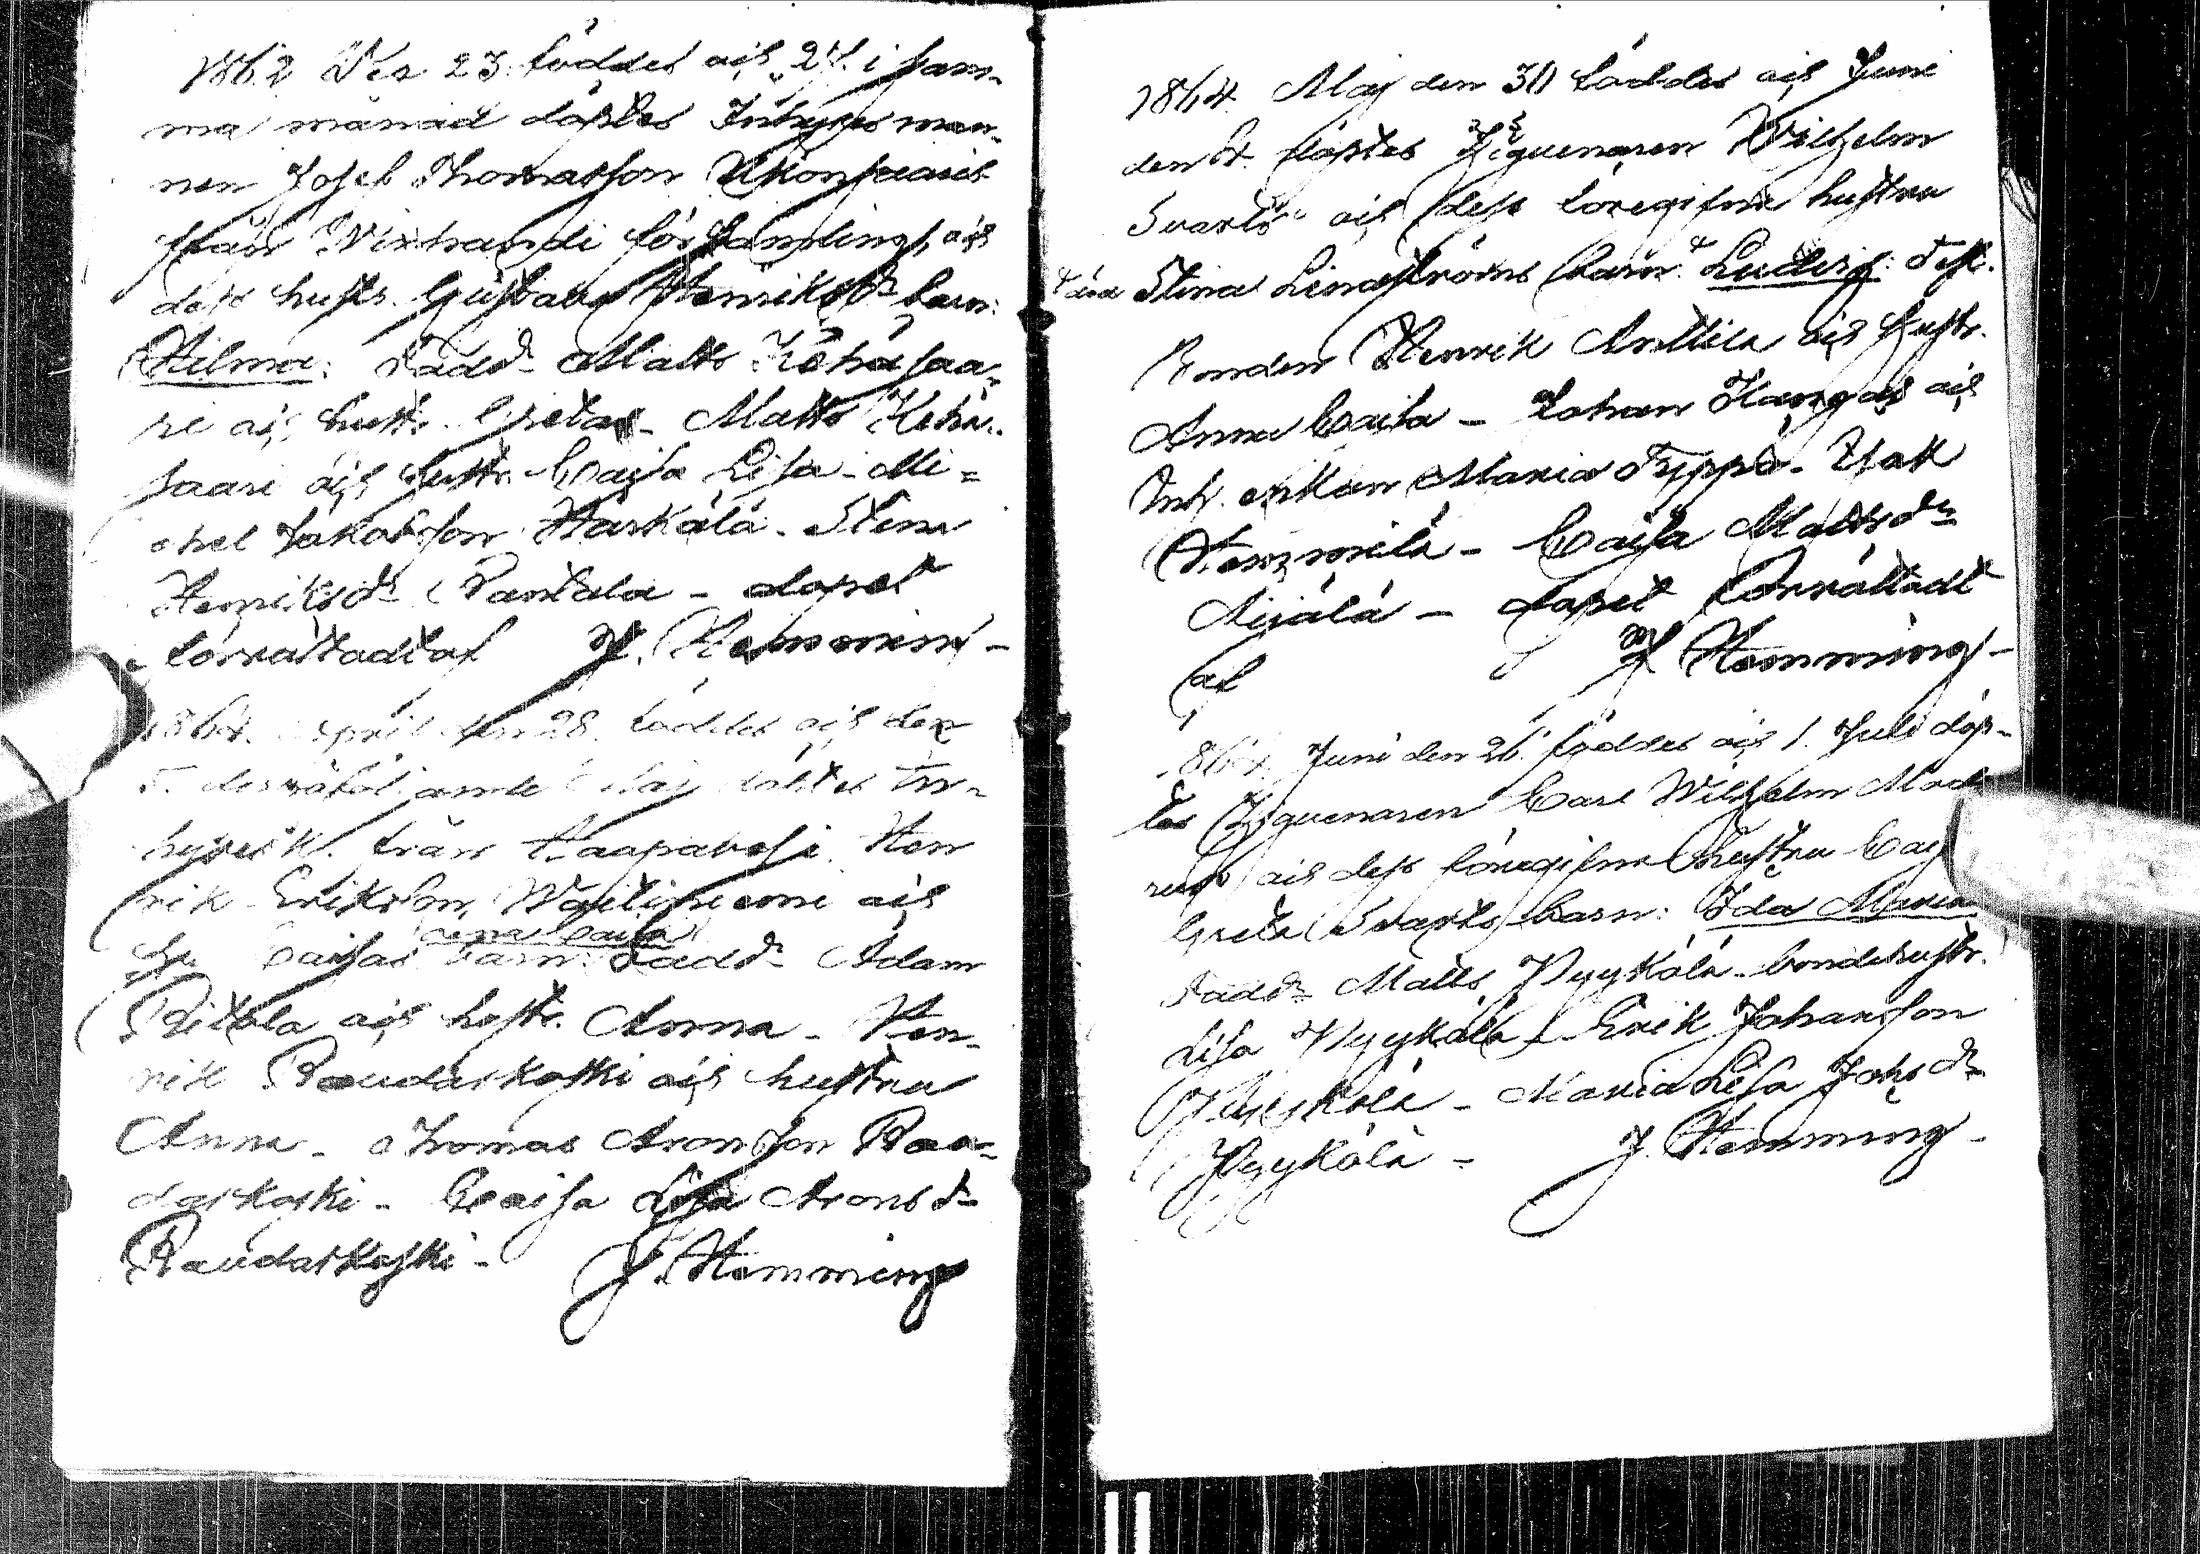 1862 Dec 23. föddes och 27. i sam-
ma månad döptes Inhyses man-
nen Josef Thomasson
från församling, och
dess hustr. Gustava Henriksdr barn:
Hilma: Fadd. Matts Kehäsaa-
ri och hustr. Greta - Matts Kehä-
saari och hustr. Caisa Lisa - Mi-
chel Jakobsson Härkälä - Stina
Henriksdr Pantala - dopet
förrättadt af J. Hemming -
1864. April den 28. föddes och den
5. derpåföljande Maj döptes In-
hyses k. från Haapavesi Hen
rik Eriksson, och
Anna Caisa
Caisas barn: Fadd. Adam
Ritola och hustr. Anna - Hen-
rik Raudaskoski och hustru
Anna - Thomas Aronsson Rau-
daskoski - Caisa Lisa Aronsdr
Raudaskoski - J. Hemming
1864 Maj den 30 föddes och Juni
den döptes Ziguenaren Wilhelm
Svarts och dess föregifna hustru
Stina Lindströms barn: Ludvig: Test.
Bonden Henrik Anttila och hustr.
Anna Caisa - Johan Kangas och
Inh. enkan Maria Typpö - Isak
Hemmilä - Caisa Mattsdr
- dopet förrättadt
af J Hemming -
1864 Juni den 26. föddes och 1. Juli döp-
tes Ziguenaren Carl Wilhelm
och dess föregifna hustru Caj
Greta Svarts barn: Ida Maria
Fadd. Matts Pyykölä - bondehustr.
Lisa Pyykölä - Erik Johansson
Pyykölä - Maria Lisa Johsdr
Pyykölä - J. Hemming -